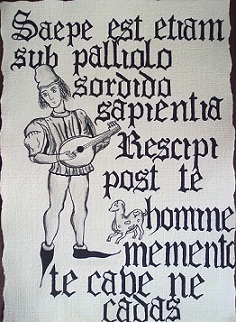 Saepe est etiam
sub palliolo
sordido
sapientia
Rescipi
post te
homine
memento
te cave ne
cadas